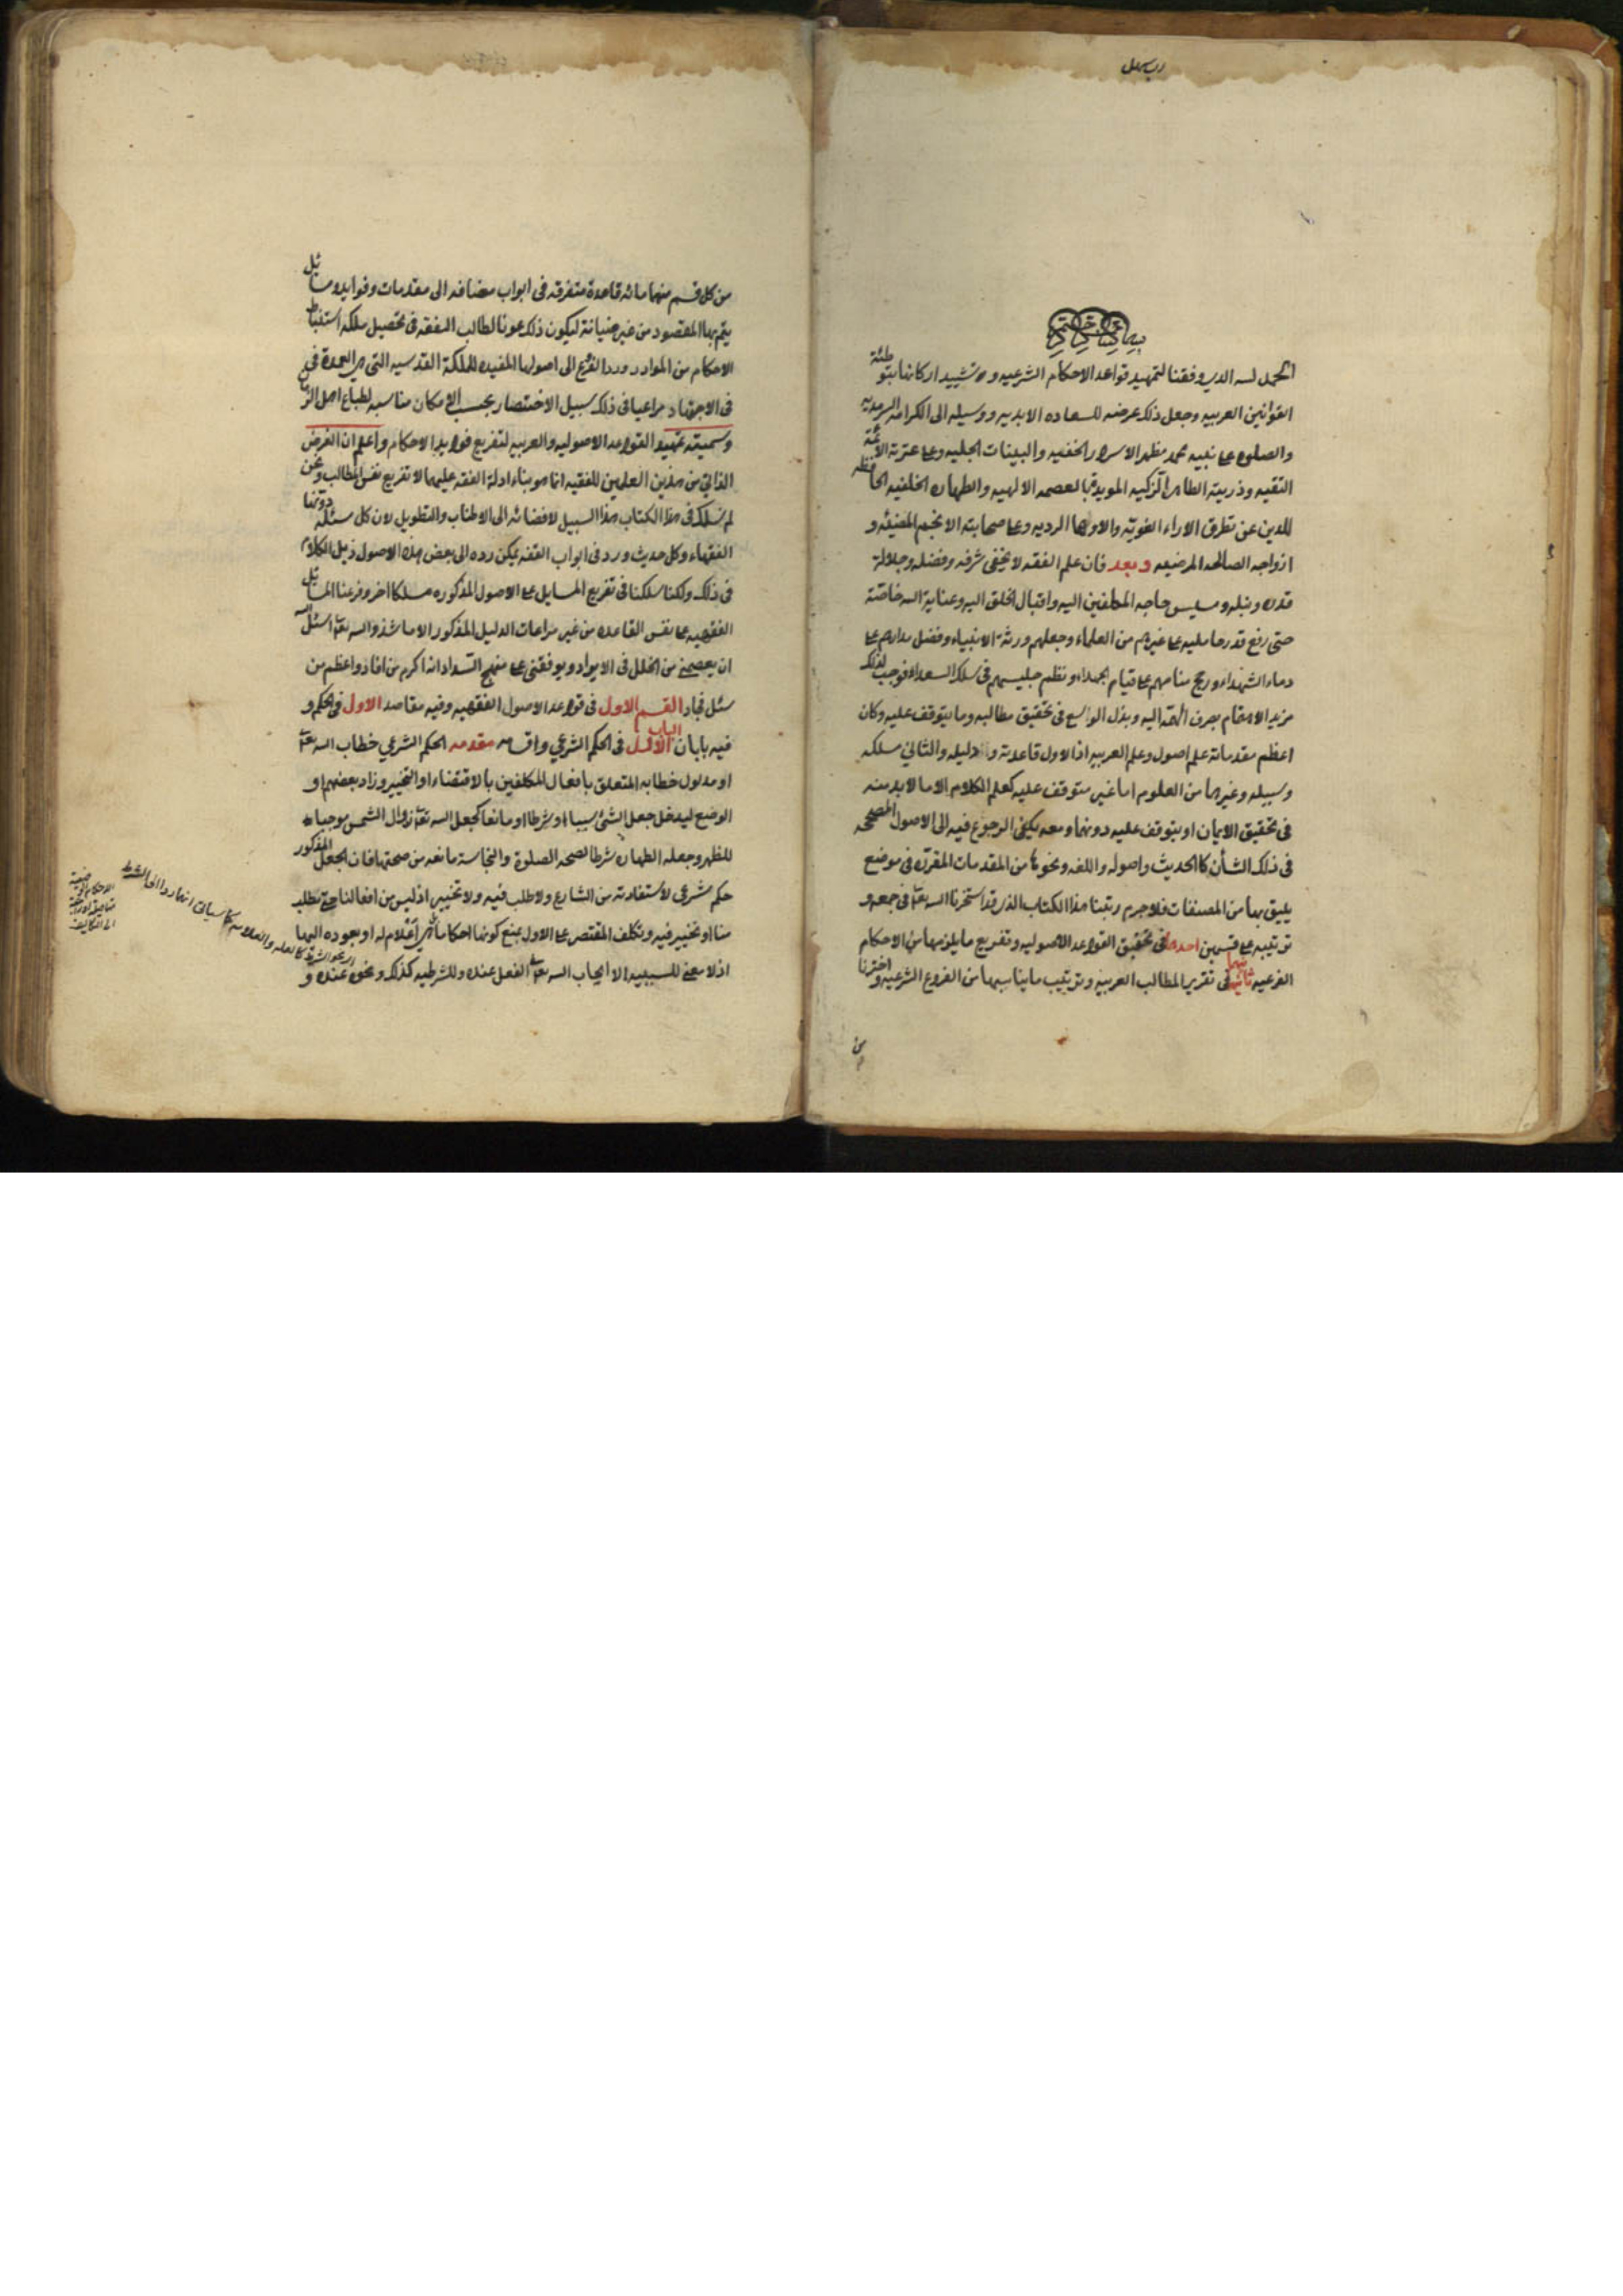 بسم الله الرحمن الرحيم
الحمد لله الذي وفقنا لتمهيد قواعد الاحكام الشرعيه وتشييد اركانها بتوطئة
القوانين العربيه وجعل ذلك عرضه للسعاده الابديه ووسيله الى الكرامه السرمديه
والصلوه على نبيه محمد مظهر الاسرار الخفيه والبينات الجليه وعلى عترته الائمة
التقيه وذريته الطاهرة الزكيه المويدة بالعصمه الالهيه والطهاره الخلقيه الحافظه
للدين عن تطرق الاراء الغويه والاوهام الرديه وعلى صحابته الانجم المضيئه و
ازواجه الصالحه المرضيه وبعد فان علم الفقه لا يخفى شرفه وفضله وجلالة
قدره ونبله ومسيس حاجه المكلفين اليه واقبال الخلق اليه وعناية الله خاصة
حتى رفع قدر حامليه على غيرهم من العلماء وجعلهم ورثة الانبياء وفضل مدادهم على
دماء الشهداء ورجح منامهم على قيام الجهلاء ونظم جليسهم في سلك السعداء فوجب لذلك
مزيد الاهتمام بصرف الهمة اليه وبذل الوسع في تحقيق مطالبه وما يتوقف عليه وكان
اعظم مقدماته علم اصوله وعلم العربيه اذ الاول قاعدته ودليله والثاني مسلكه
وسبيله وغيرهما من العلوم اما غير متوقف عليه كعلم الكلام الا ما لا بد منه
في تحقيق الايمان او يتوقف عليه دونهما ومعه يكفي الرجوع فيه الى الاصول المصححه
في ذلك الشأن كالحديث واصوله واللغه ونحوها من المقدمات المقررة في موضع
يليق بها من المصنفات فلا جرم رتبنا هذا الكتاب الذي قد استخرنا الله تعالى في جمعه و
ترتيبه على قسمين احدهما في تحقيق القواعد الاصوليه وتفريع ما يلزمها من الاحكام
الفرعيه ثانيهما في تقرير المطالب العربيه وترتيب ما يناسبها من الفروع الشرعيه واخترنا
من
من كل قسم منهما مائة قاعدة متفرقه في ابواب مضافه الى مقدمات وفوايد ومسائل
يتم بها المقصود من غير صيانة ليكون ذلك عونا لطالب التفقه في تحصيل ملكه استنباط
الاحكام من الموارد ورد الفروع الى اصولها المفيده للملكة القدسيه التي هي العمدة في
في الاجتهاد مراعيا في ذلك سبيل الاختصار بحسب الامكان مناسبه لطباع اهل الزمان
وسميته تمهيد القواعد الاصوليه والعربيه لتفريع فوايد الاحكام واعلم ان الغرض
الذاتي من هذين العلمين للفقيه انما هو بناء ادلة الفقه عليهما لا تفريع نفس المطالب ونحن
لم نسلك في هذا الكتاب هذا السبيل لافضائه الى الاطناب والتطويل لان كل مسئلة دونها
الفقهاء وكل حديث ورد في ابواب الفقه يمكن رده الى بعض هذه الاصول ذيل الكلام
في ذلك ولكنا سلكنا في تفريع المسايل على الاصول المذكوره مسلكا اخر وفرعنا المسائل
الفقهيه على نفس القاعده من غير مراعات الدليل المذكور الا ما شذ والله تعالى اسئل
ان يعصمني من الخلل في الايراد ويوفقني على منهج السداد انه اكرم من افاد واعظم من
سئل فجاد القسم الاول في قواعد الاصول الفقهيه وفيه مقاصد الاول في الحكم و
فيه بابان الباب الاول في الحكم الشرعي واقسامه مقدمه الحكم الشرعي خطاب الله تعالى
او مدلول خطابه المتعلق بافعال المكلفين بالاقتضاء او التخيير وزاد بعضهم او
الوضع ليدخل جعل الشئ سببا او شرطا او مانعا كجعل الله تعالى زوال الشمس موجبا
للظهر وجعله الطهاره شرطا لصحه الصلوة والنجاسة مانعه من صحتها فان الجعل المذكور
حكم شرعي لاستفادته من الشارع ولا طلب فيه ولا تخيير اذ ليس من افعالنا حتى يطلب
منا او تخيير فيه وتكلف المقتصر على الاول بمنع كونها احكاما بل هي اعلام له او بعوده اليهما
اذ لا معنى للسببيه الا ايجاب الله تعالى الفعل عنده وللشرطيه كذلك ونحوه عنده و